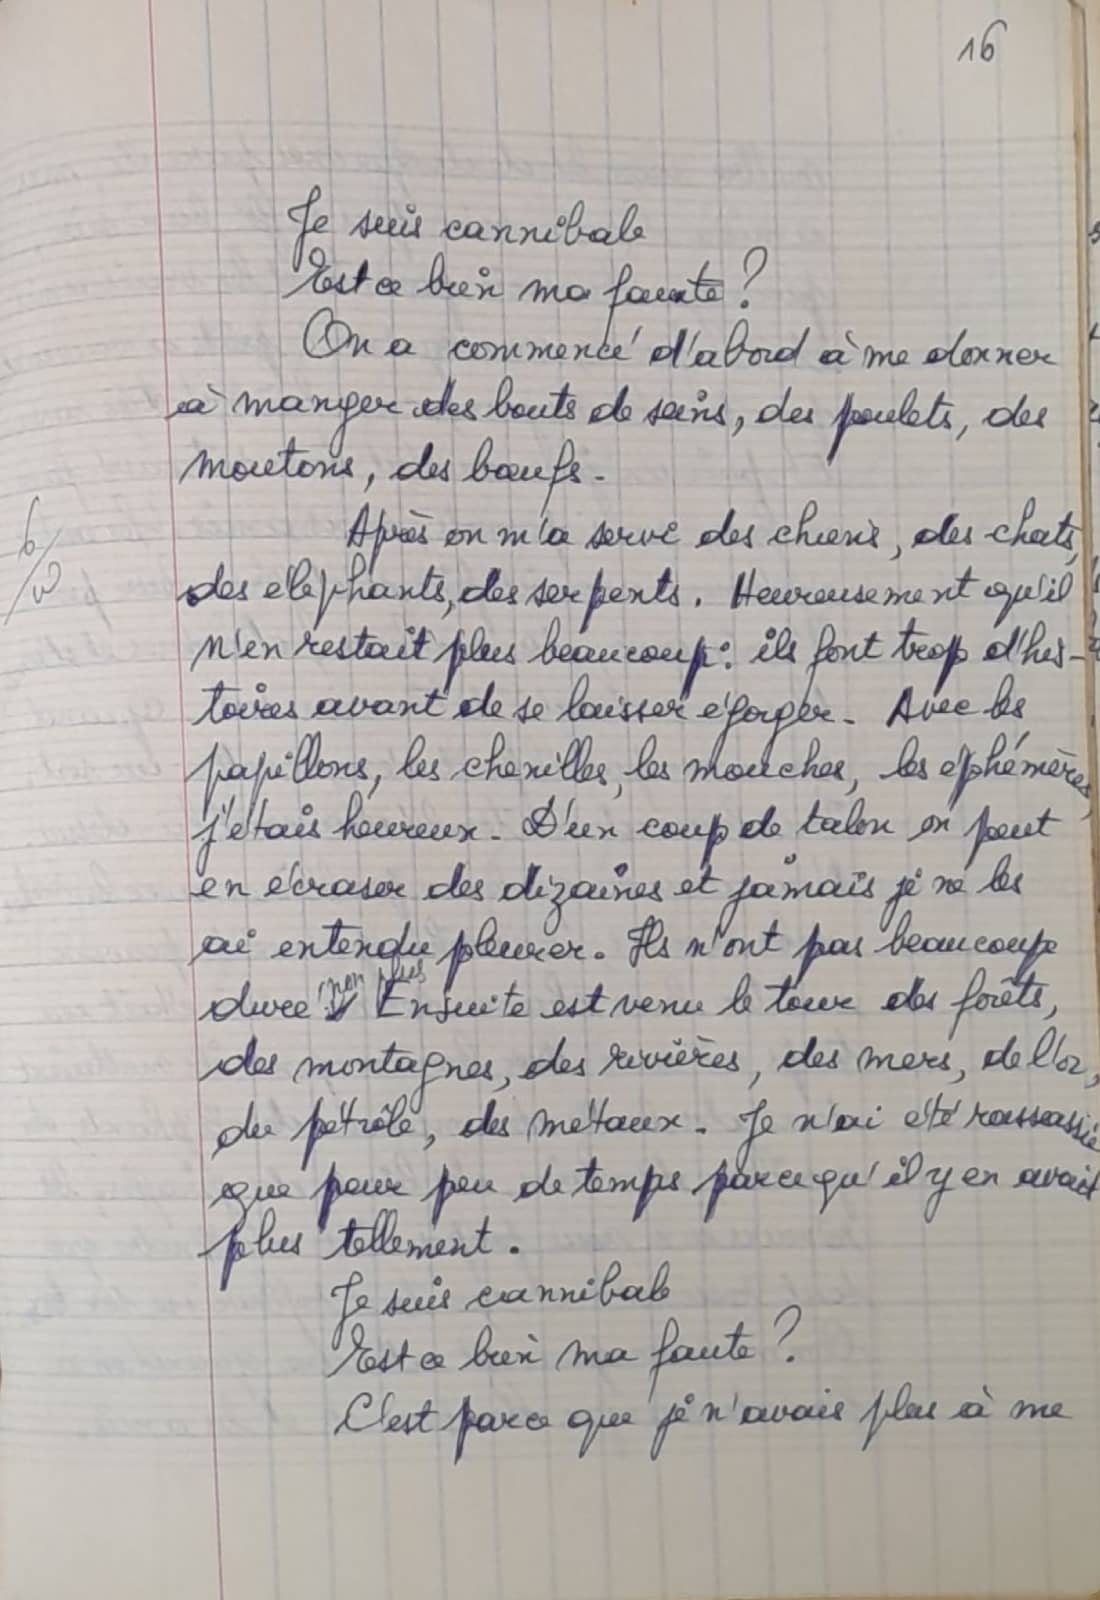 16
Je suis cannibale
Est ce bien ma faute ?
On a commencé d'abord à me donner
à manger des bouts de seins, des poulets, des
moutons, des bœufs.
Après on m'a servi des chiens, des chats,
des éléphants, des serpents. Heureusement qu'il
n'en restait plus beaucoup : ils font trop d'his-
toires avant de se laisser égorger. Avec les
papillons, les chenilles, les mouches, les éphémères,
j'étais heureux. D'un coup de talon on peut
en écraser des dizaines et jamais je ne les
ai entendu pleurer. Ils n'ont pas beaucoup
duré non plus. Ensuite est venu le tour des forêts,
des montagnes, des rivières, des mers, de l'or,
du pétrôle, des métaux. Je n'ai été rassassié
que pour peu de temps parce qu'il y en avait
plus tellement.
Je suis cannibale
Est ce bien ma faute ?
C'est parce que je n'avais plus à me